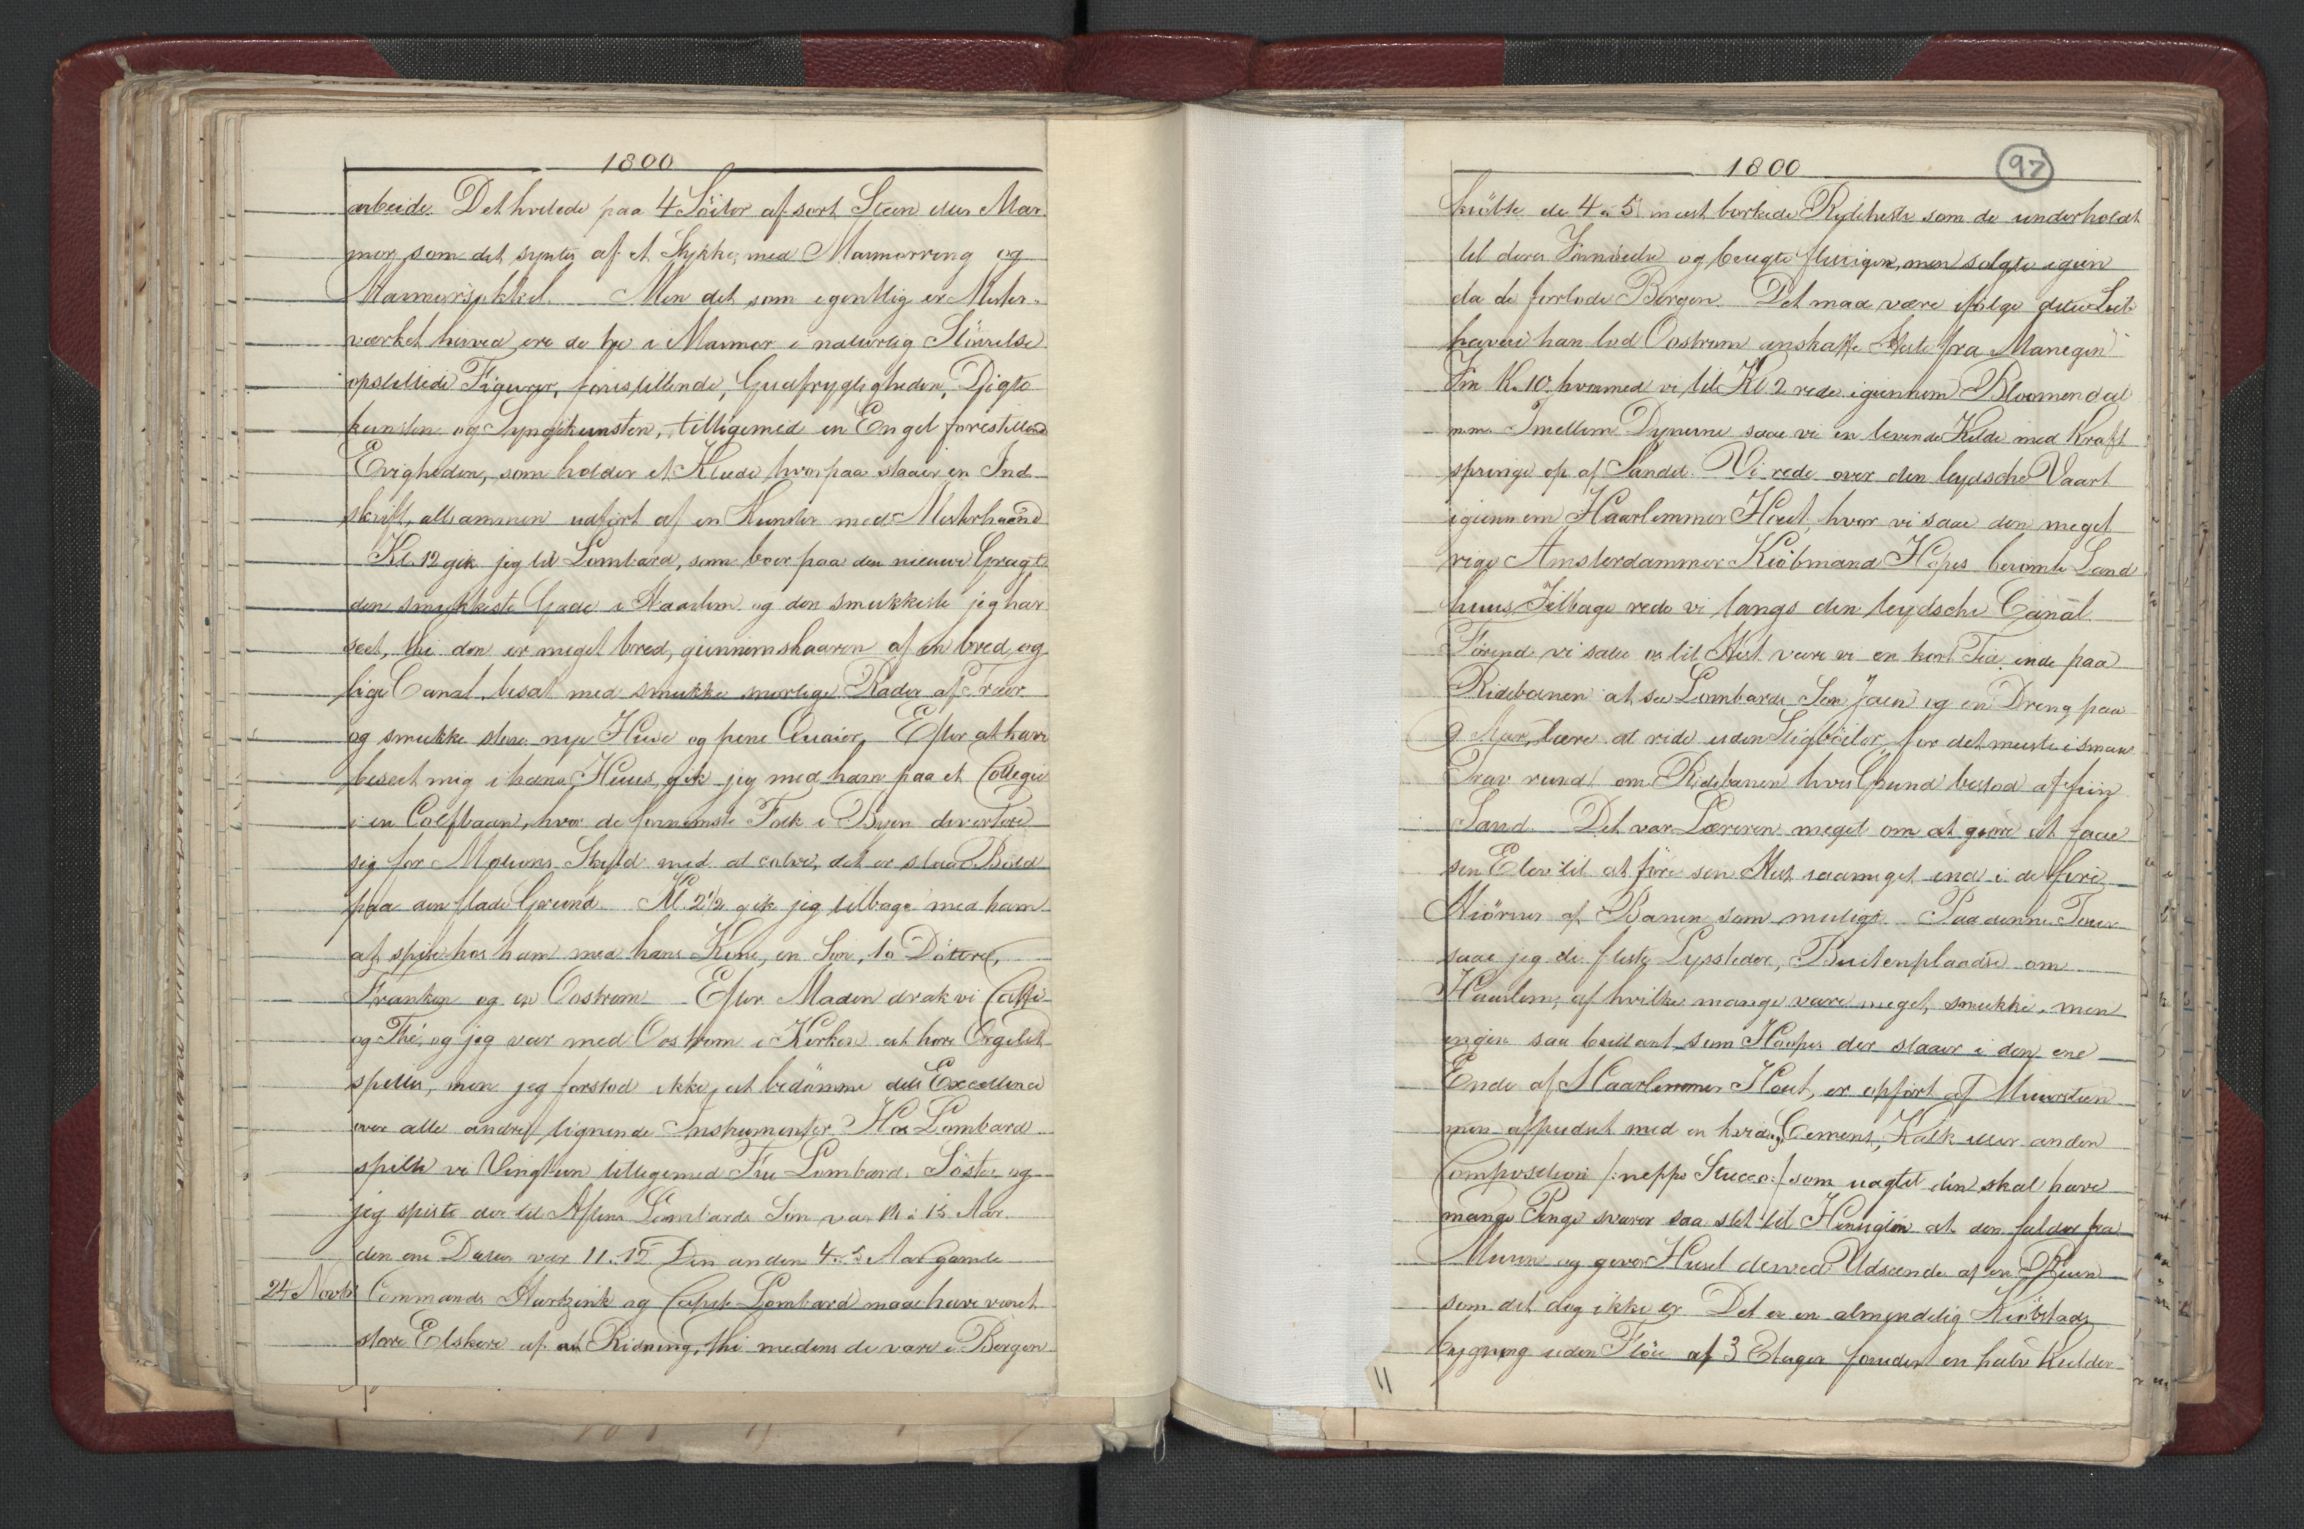 1800
arbeide. Det hvilede paa 4 Söiler af sort Steen eller Mar
mor, som det syntes af et Stykke, med Marmorring og
Marmorsokkel. Men det som egentlig er Mester-
værket herved ere de tre i Marmor i naturlig Störrelse
opstillede Figurer, forestillende, Gudfrygtigheden, Digte
kunsten og Syngekunsten, tilligemed en Engel forestillend
Evigheden, som holder et Klæde hvorpaa staaer en Ind
skrift, allsammen udfört af en Kunster med Mesterhaand
Kl. 12 gik jeg til Lombard, som boer paa den nieuwe Gragt
den smukkeste Gade i Haarlem og den smukkeste jeg har
seet, thi den er meget bred, giennemskaaren af en bred og
lige Canal, besat med smukke snorlige Rader af Træer
og smukke store nye Huse og pene Quaier. Efter at have
beseet mig i hans Huus, gik jeg med ham paa et Collegie
i en Colfbaan, hvor de fornemste Folk i Byen divertere
sig for Motions Skyld med at colve, det er slaae Bold
paa den flade Grund. Kl. 2 1/2 gik jeg tilbage med ham
at spise hos ham med hans Kone, en Sön, to Döttre,
Franken og en Oostrom Efter Maden drak vi Caffe
og Thé, og jeg var med Oostrom i Kirken at høre Orgelet
spilles, men jeg forstod ikke at bedömme dets Excellence
over alle andre lignende Instrumenter. Hos Lombard
spilte vi Vingtun tilligemed Frue Lombard. Söster og
jeg spiste der til Aften Lombards Sön var 14 à 15 Aar
den ene Datter var 11 à 12 Den anden 4 à 5 Aar gamle
24 Novbr Commandr Hartzink og Capt Lombard maae have været
store Elskere af Ridning, thi medens de vare i Bergen
1800
97
kiöbte de 4 à 5 meest berkede Rideheste som de underholdt
til deres Fornöielse og brugte flittigen, men solgte igien
da de forlode Bergen. Det maa være ifölge dette Lieb
haverie han lod Oostrom anskaffe Heste fra Manegen
Fm K. 10, hvormed vi til Kl. 2 rede igiennem Bloomendal
m.m. Imellem Dynerne saae vi en levende Kilde med Kraft
springe op af Sandet. Vi rede over den leydsche Vaart
igiennem Haarlemmer Hout, hvor vi saae den meget
rige Amsterdammer Kiöbmand Hopes berömte Land
huus. Tilbage rede vi langs den leydsche Canal.
Förend vi satte os til Hest vare vi en kort Tid inde paa
Ridebanen at see Lombards Sön Jaen og en Dreng paa
9 Aar, lære at ride uden Stigböiler, for det meste i smaae
Trav rund om Ridebanen hvis Grund bestod af fiin
Sand. Det var Læreren meget om at giøre at faae
sin Elev til at före sin Hest saameget ind i de fire
Hiörner af Banen som muligt. Paa denne Tour
saae jeg de fleste Lyssteder, Buitenplaadse om
Haarlem, af hvilke mange vare meget smukke, men
ingen saa brillant som Hoopes der staaer i den ene
Ende af Haarlemmer Hout, er opfört af Muursteen
men afpudset med en hvid Cement, Kalk eller anden
Composition /:neppe Stucco:/ som uagtet den skal have
mange Penge svarer saa slet til Hensigten at den falder fra
Muren og giver Huset derved Udseende af en Ruin
som det dog ikke er Det er en almindelig Kiöbstads
bygning uden Flöie af 3 Etager foruden en halv Kielder
11